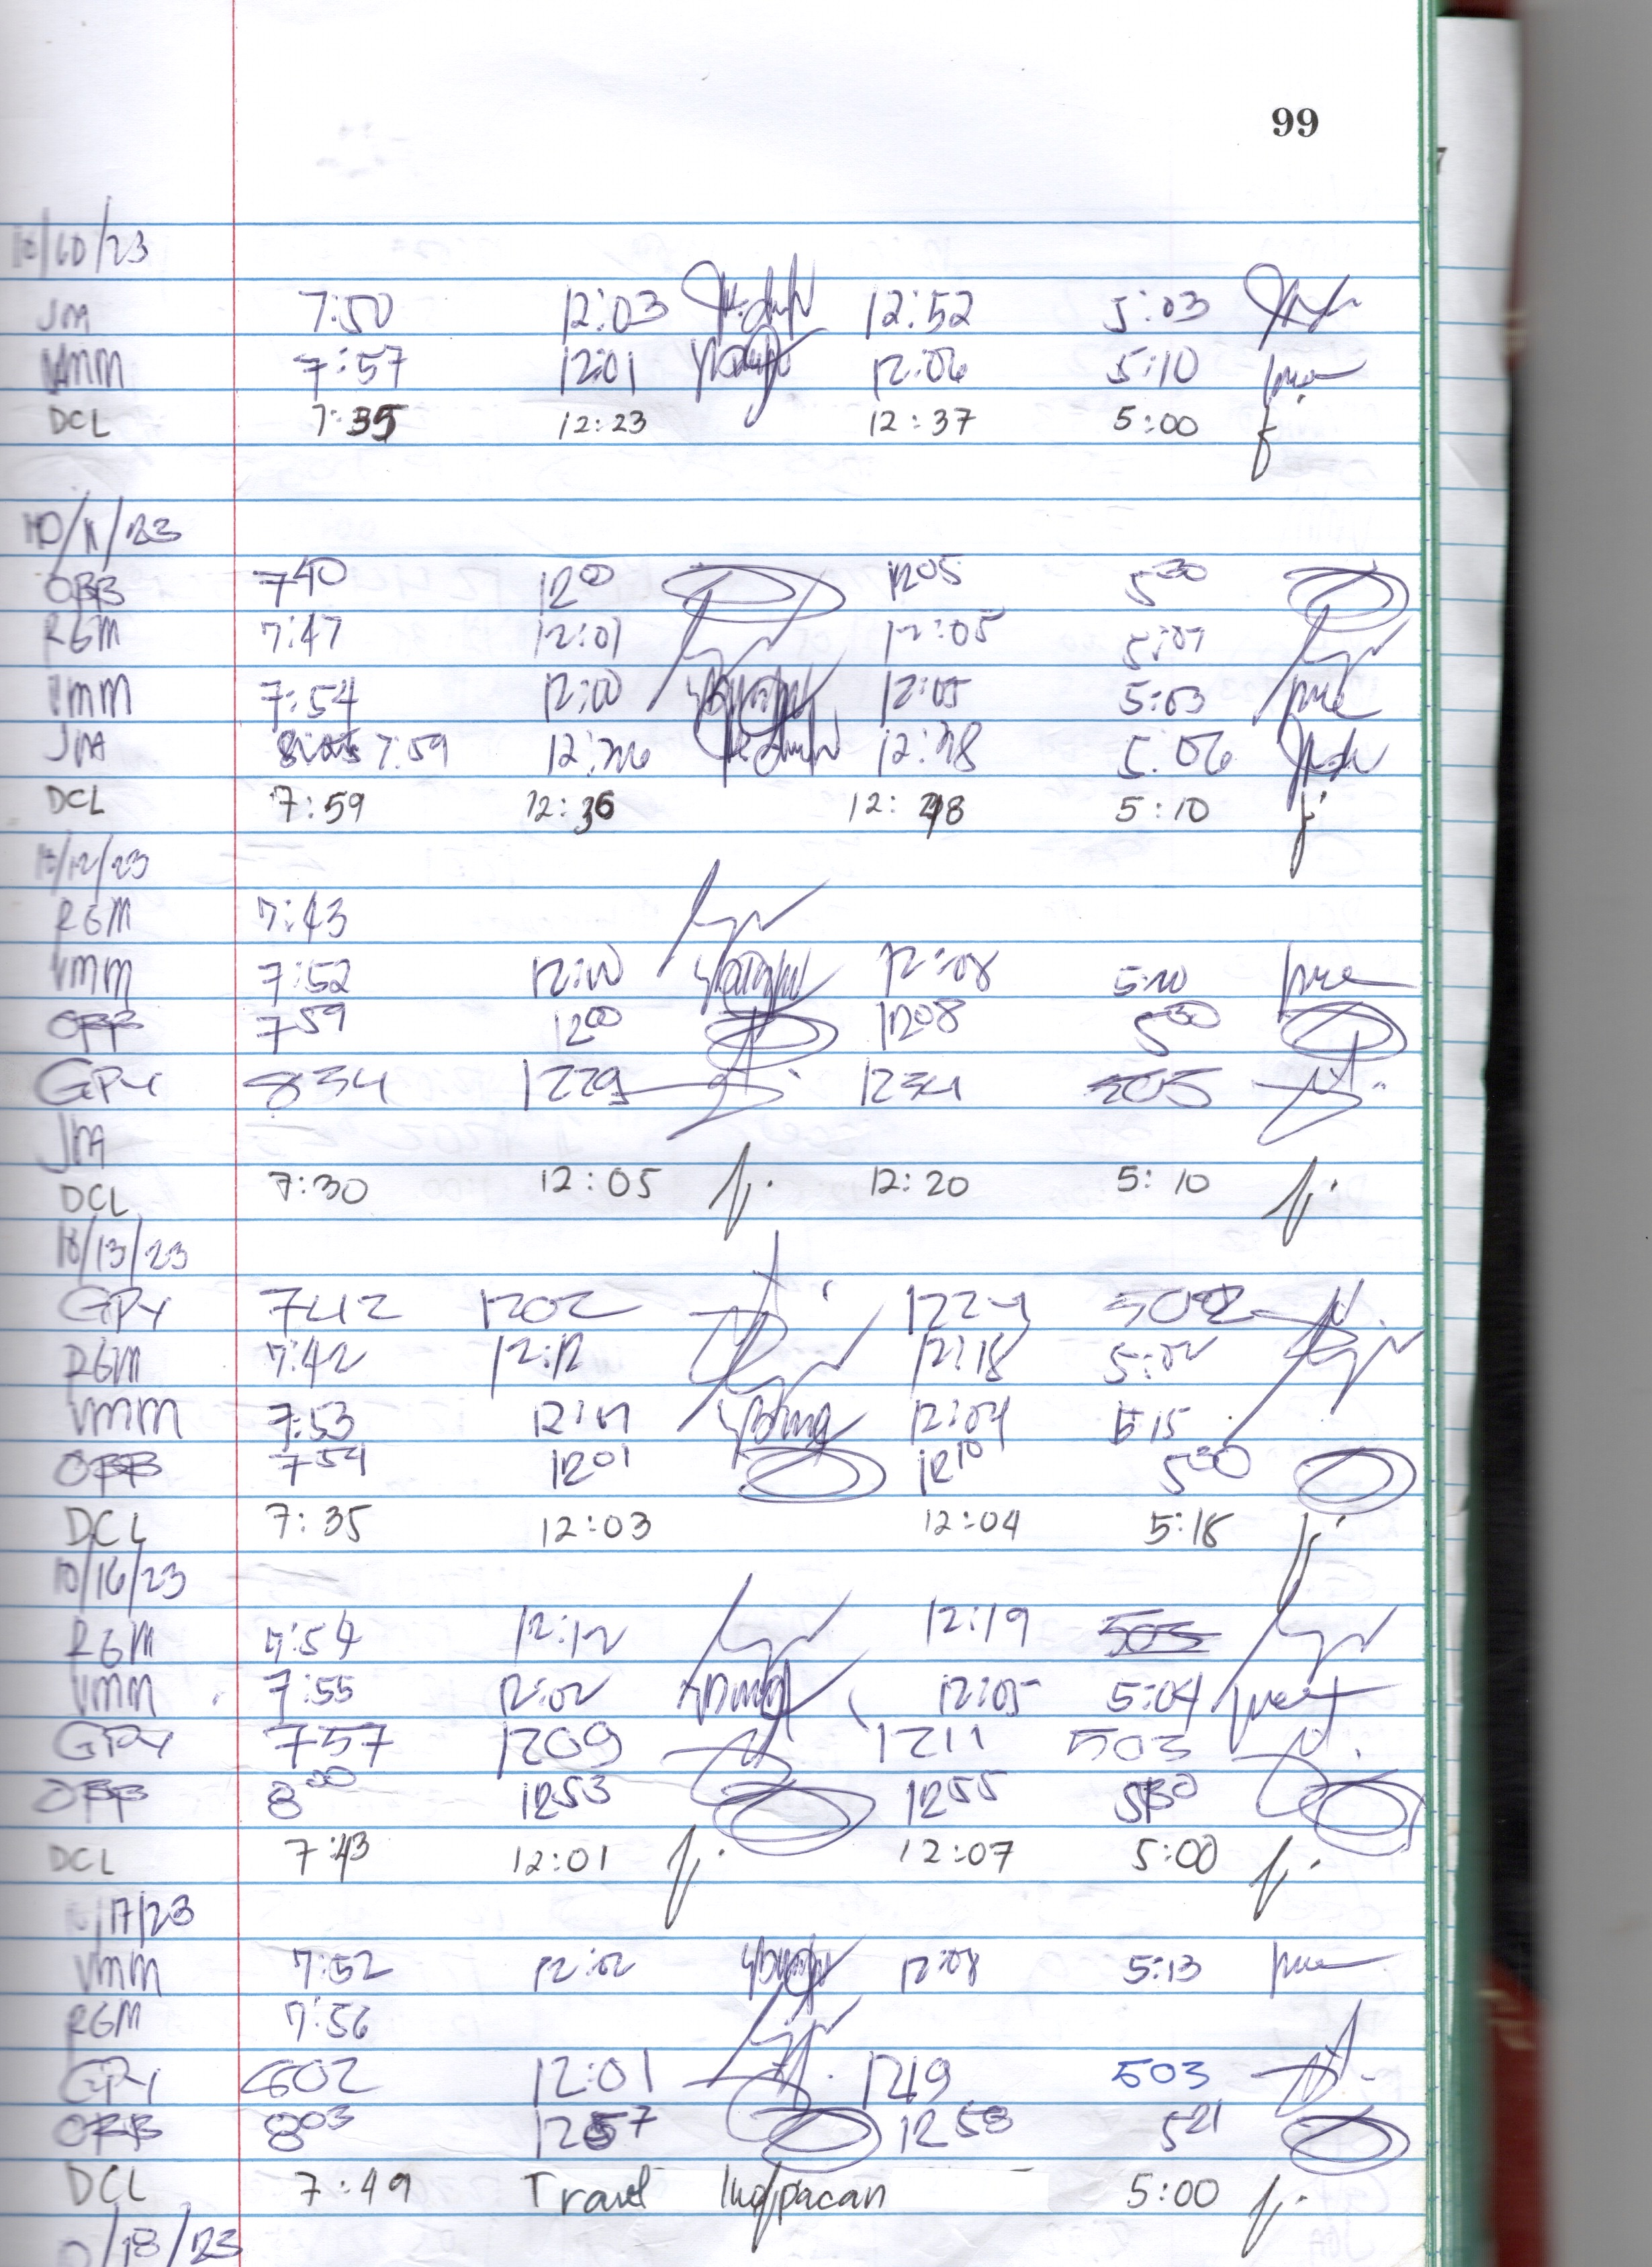 99
10/10/23
JMA 7:50 12:03 12:52 5:03
VMM 7:57 12:01 12:06 5:10
DCL 7:35 12:23 12:37 5:00
10/11/23
OBB 7 40 12 00 12 05 5 30
RGM 7:47 12:01 12:05 5:01
VMM 7:54 12:00 12:05 5:03
JMA 7:59 12:36 12:38 5:06
DCL 7:59 12:36 12:48 5:10
10/12/23
RGM 7:43
VMM 7:52 12:00 12:08 5:10
OBB 7 59 12 00 12 08 5 30
GPY 834 1229 1234 505
JMA
DCL 7:30 12:05 12:20 5:10
10/13/23
GPY 742 1202 1224 502
RGM 7:42 12:12 12:18 5:02
VMM 7:53 12:01 12:04 5:15
OBB 7 54 12 01 12 10 5 30
DCL 7:35 12:03 12:04 5:18
10/16/23
RGM 7:54 12:12 12:19 503
VMM 7:55 12:02 12:05 5:04
GPY 757 1209 1211 503
OBB 8 00 12 53 12 55 5 30
DCL 7:43 12:01 12:07 5:00
10/17/23
VMM 7:52 12:02 12:08 5:13
RGM 7:56
GPY 802 12:01 1249 503
OBB 8 03 12 57 12 58 5 21
DCL 7:49 Travel 5:00
10/18/23